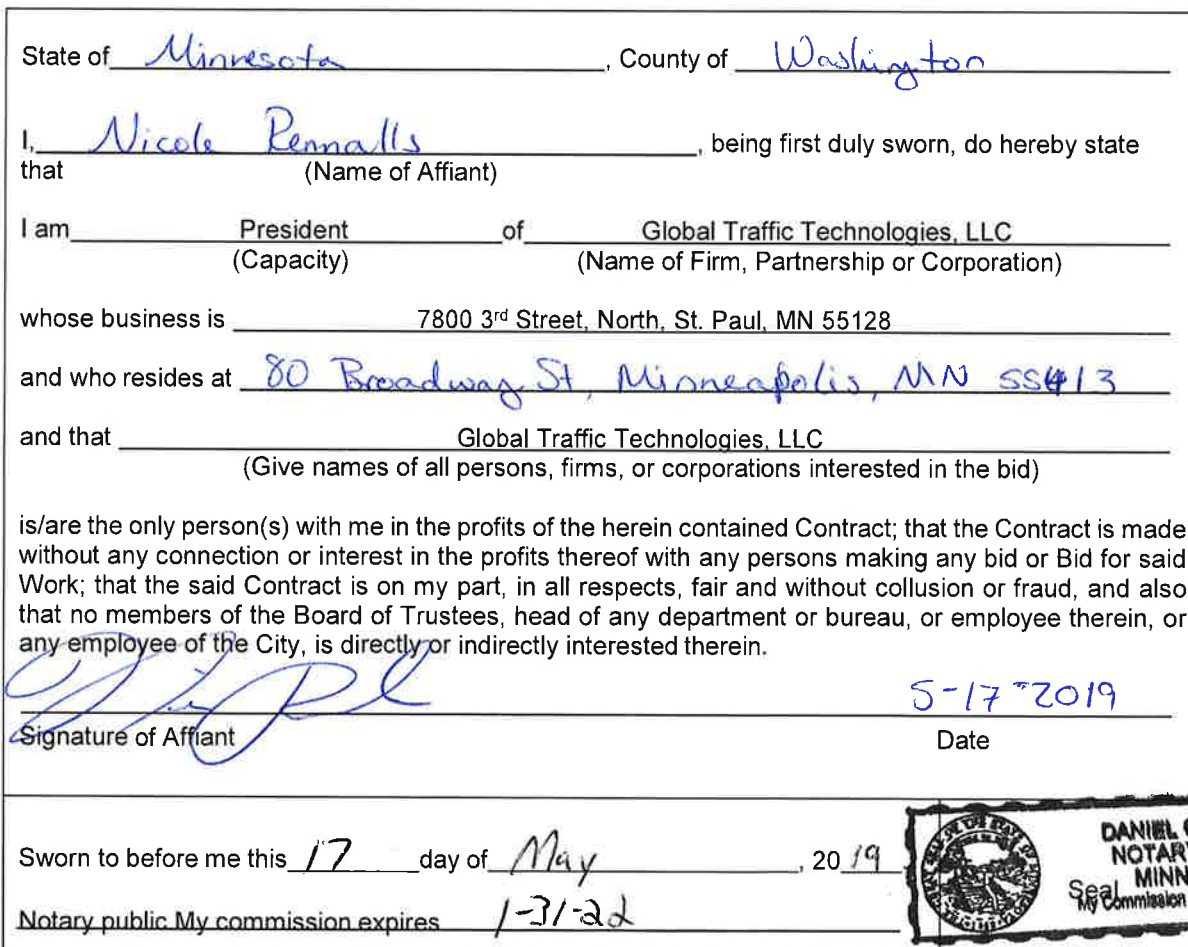 State of Minnesota, County of Washington
I, Nicole Rennalls, being first duly sworn, do hereby state
that (Name of Affiant)
I am President of Global Traffic Technologies, LLC
(Capacity) (Name of Firm, Partnership or Corporation)
whose business is 7800 3rd Street, North, St. Paul, MN 55128
and who resides at 80 Broadway St, Minneapolis, MN 55413
and that Global Traffic Technologies, LLC
(Give names of all persons, firms, or corporations interested in the bid)
is/are the only person(s) with me in the profits of the herein contained Contract; that the Contract is made
without any connection or interest in the profits thereof with any persons making any bid or Bid for said
Work; that the said Contract is on my part, in all respects, fair and without collusion or fraud, and also
that no members of the Board of Trustees, head of any department or bureau, or employee therein, or
any employee of the City, is directly or indirectly interested therein.
5-17-2019
Signature of Affiant Date
Sworn to before me this 17 day of May, 2019
Notary public My commission expires 1-31-22
DANIEL
NOTAR
MINN
Seal
My Commission